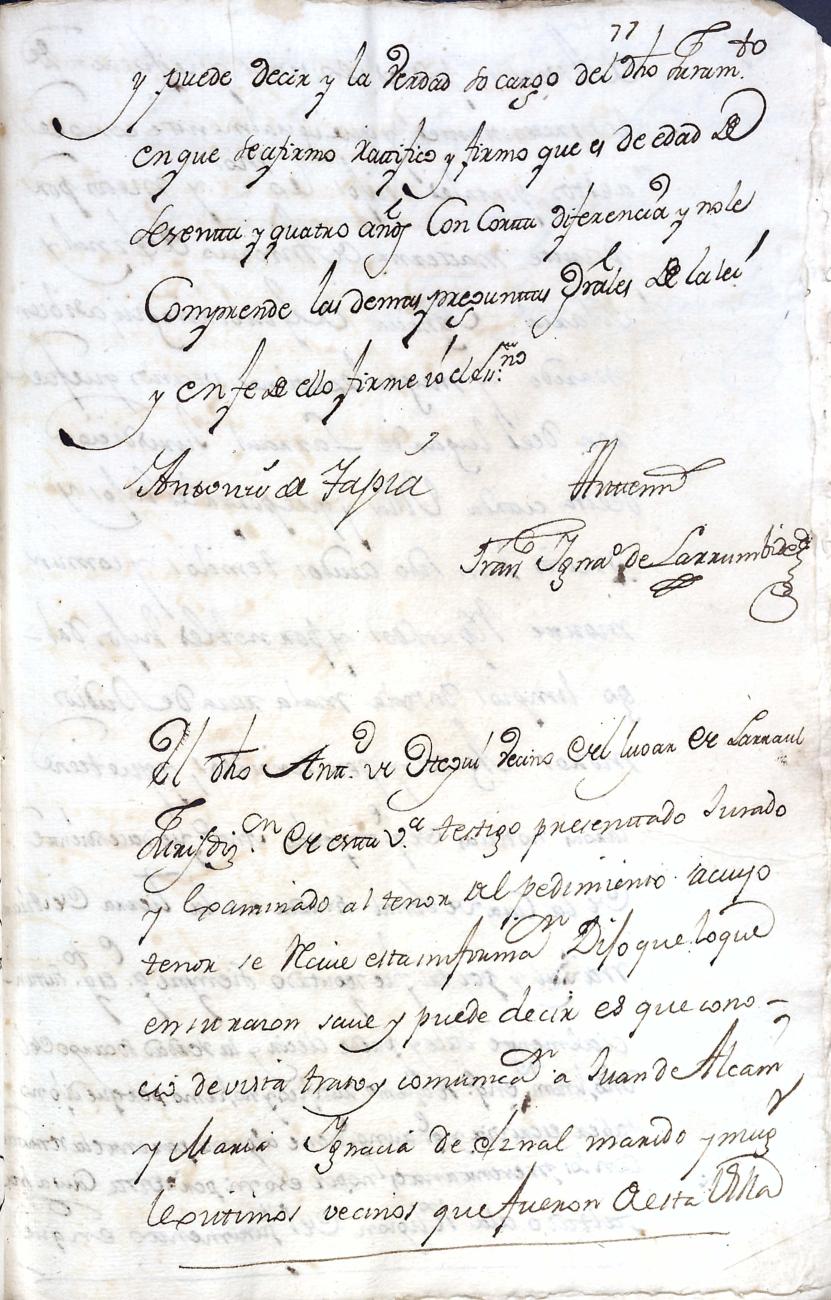 77
y puede decir y la verdad so cargo del dho Juram.to
en que se afirmo Rattifico y firmo que es de edad de
sesentta y quatro años Con Cortta diferencia y no le
Comprende las demas pregunttas Grales de la lei
y en fe de ello firme io el ss.no
Antonio de Tapia Antemi
Fran.co Ygna.o de Larrumbide
El dho Antt.o de Otegui vecino del lugar de Larraul
Jurisdiz.on de estta V.a testigo presenttado Jurado
y Examinado al tenor del pedimiento acuyo
tenor se Reciue esta informa.on Dijo que loque
en su razon saue y puede decir es que cono-
cio de vista trato y comunica.on a Juan de Alcain
y Maria Ygnacia de Aznal marido y mug.r
lexitimos vecinos que fueron de esta Villa